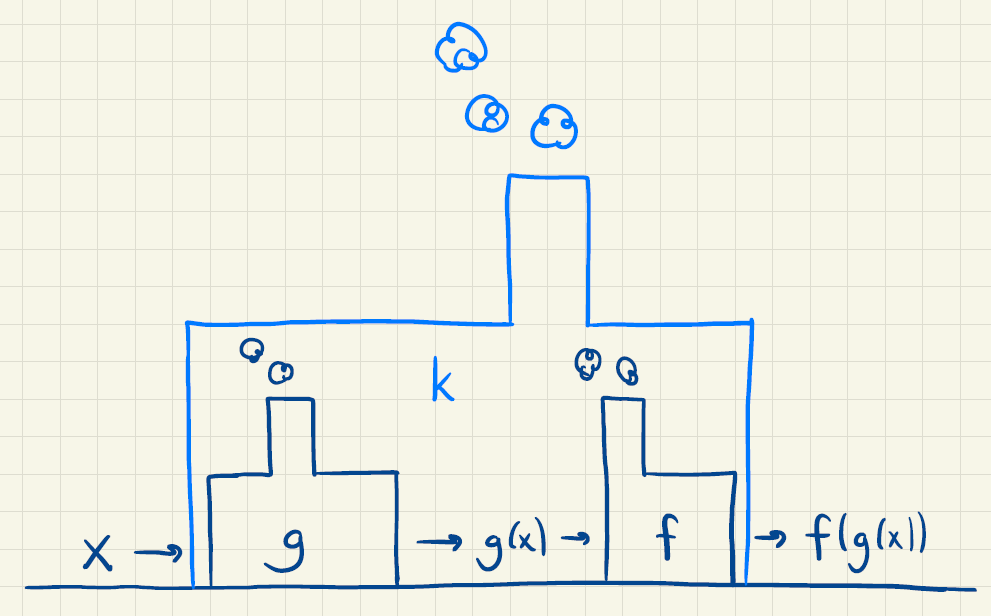 k
x → g → g(x) → f → f(g(x))